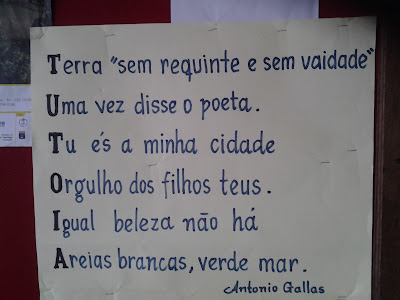 Terra "sem requinte e sem vaidade"
Uma vez disse o poeta.
Tu és a minha cidade
Orgulho dos filhos teus.
Igual beleza não há
Areias brancas, verde mar.
Antonio Gallas